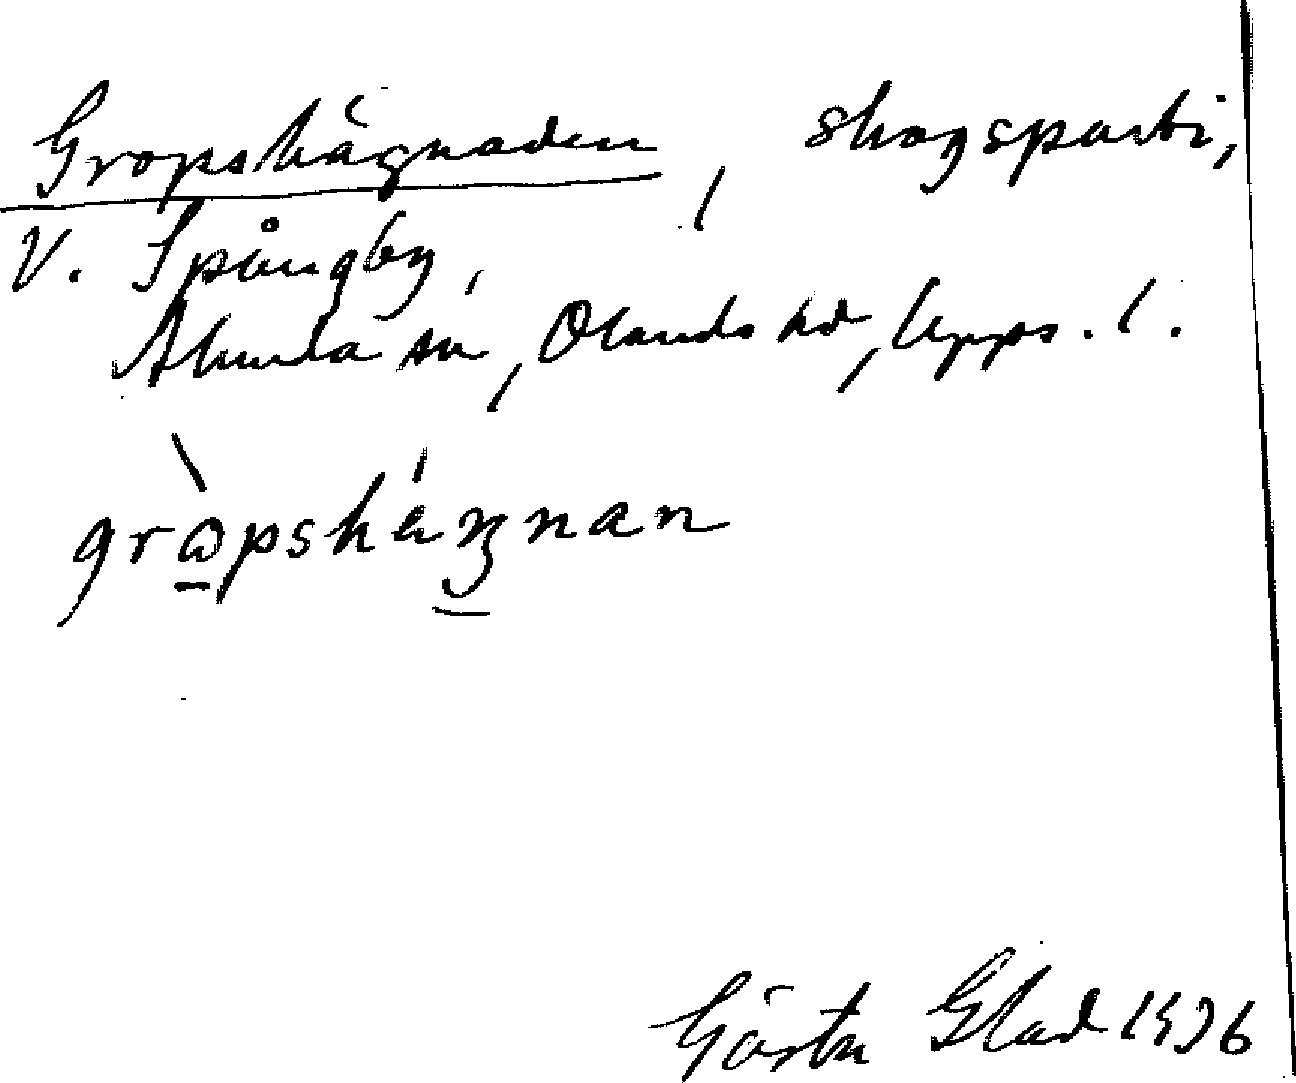 Gropshägnaden, skogsparti,
V. Spångby,
Alunda sn, Olands hd, Upps. l.
gròpshäŋnan
Gösta Glad 1936